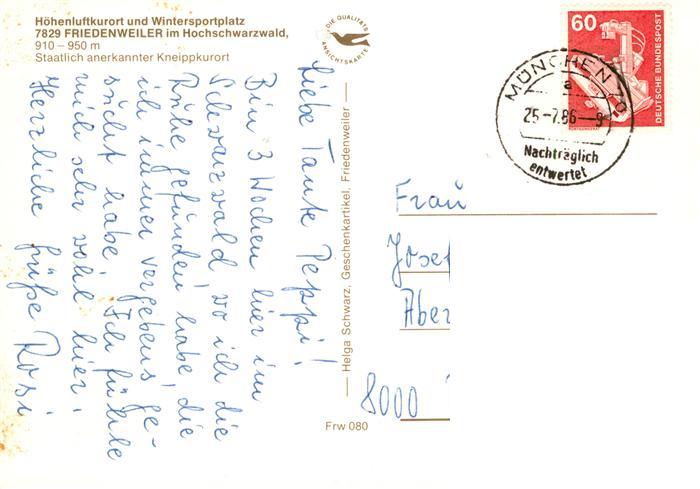 Höhenluftkurort und Wintersportplatz
7829 FRIEDENWEILER im Hochschwarzwald,
910 – 950 m
Staatlich anerkannter Kneippkurort
DIE QUALITÄTS
ANSICHTSKARTE
Liebe Tante Peppi!
Bin 3 Wochen hier im
Schwarzwald wo ich die
Ruhe gefunden habe, die
ich immer vergebens, ge-
sucht habe. Ich fühle
mich sehr wohl hier.
Herzliche Grüße Rosi
Helga Schwarz, Geschenkartikel, Friedenweiler
Frw 080
60
DEUTSCHE BUNDESPOST
MÜNCHEN 70
a
25.-7.86--9
Nachträglich
entwertet
Frau
Josef
Aber
8000